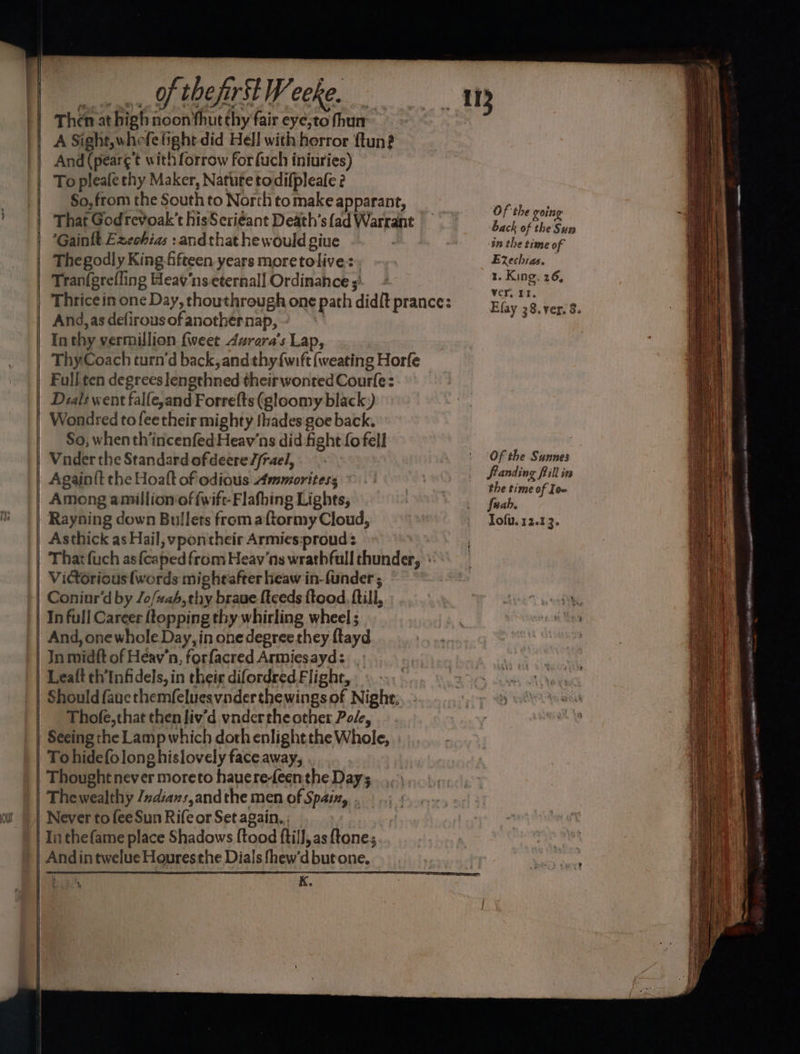 of the firſt Weeke.
113
Then at high noon ſhut thy fair eye, to ſhun
A Sight, whoſe ſight did Hell with horror ſtun?
And (pearç't with ſorrow for ſuch iniuries)
To pleaſe thy Maker, Nature to diſpleaſe?
So, from the South to North to make apparant,
That God revoak't his Serieant Death's ſad Warrant
'Gainſt Ezechias: and that he would giue
The godly King fifteen years more to live:
Tranſgreſſing Heav'ns eternall Ordinance;
Thrice in one Day, thou through one path didſt prance:
And, as deſirous of another nap,
In thy vermillion ſweet Aurora's Lap,
Thy Coach turn'd back, and thy ſwift ſweating Horſe
Full ten degrees lengthned their wonted Courſe:
Dials went falſe, and Forreſts (gloomy black)
Wondred to ſee their mighty ſhades goe back.
So, when th'incenſed Heav'ns did fight ſo fell
Vnder the Standard of deere Iſrael,
Againſt the Hoaſt of odious Ammorites;
Among a million of ſwift-Flaſhing Lights,
Rayning down Bullets from a ſtormy Cloud,
As thick as Hail, vpon their Armies proud:
That ſuch as ſcaped from Heav'ns wrathfull thunder,
Victorious ſwords might after heaw in-ſunder;
Coniur'd by Ioſuah, thy braue ſteeds ſtood ſtill,
In full Career ſtopping thy whirling wheel;
And, one whole Day, in one degree they ſtayd
In midſt of Heav'n, for ſacred Armies ayd:
Leaſt th'Infidels, in their diſordred Flight,
Should ſaue themſelues vnder the wings of Night.
Thoſe, that then liv'd vnder the other Pole,
Seeing the Lamp which doth enlight the Whole,
To hide ſo long his lovely face away,
Thought never more to haue re-ſeen the Day;
The wealthy Indians, and the men of Spain,
Never to ſee Sun Riſe or Set again.
In the ſame place Shadows ſtood ſtill, as ſtone;
And in twelue Houres the Dials ſhew'd but one.
K.
Of the going
back of the Sun
in the time of
Ezechias.
2. King. 26,
ver. 11.
Eſay 38. ver. 8.
Of the Sunnes
ſtanding ſtill in
the time of Io-
ſuah.
Ioſu. 12.13.